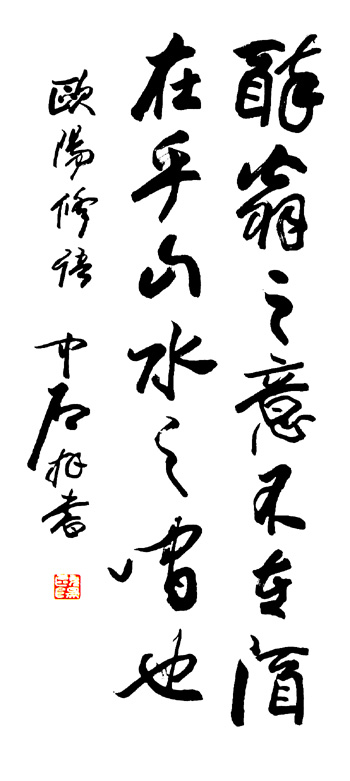 醉翁之意不在酒
在乎山水之間也
歐陽修語 中石書